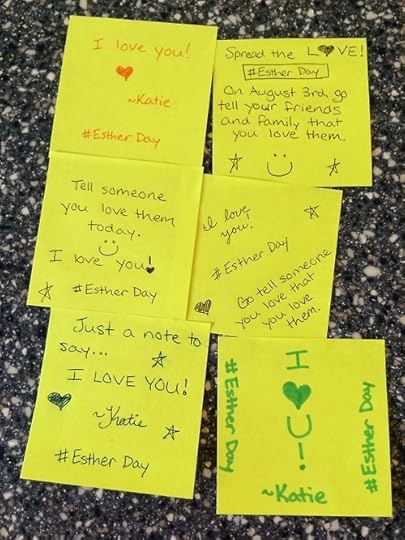 I love you!
~Katie
#Esther Day
Spread the L♥VE!
#Esther Day
On August 3rd, go
tell your friends
and family that
you love them.
Tell someone
you love them
today.
I love you!
#Esther Day
I love
you!
#Esther Day
Go tell someone
you love that
you love
them.
Just a note to
say...
I LOVE YOU!
~Katie
#Esther Day
I
♥
U!
~Katie
#Esther Day
#Esther Day